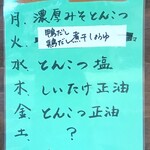 月. 濃厚みそとんこつ
火. 鴨だし
鶏だし煮干しょうゆ
水 とんこつ塩
木 しいたけ正油
金 とんこつ正油
土 ?